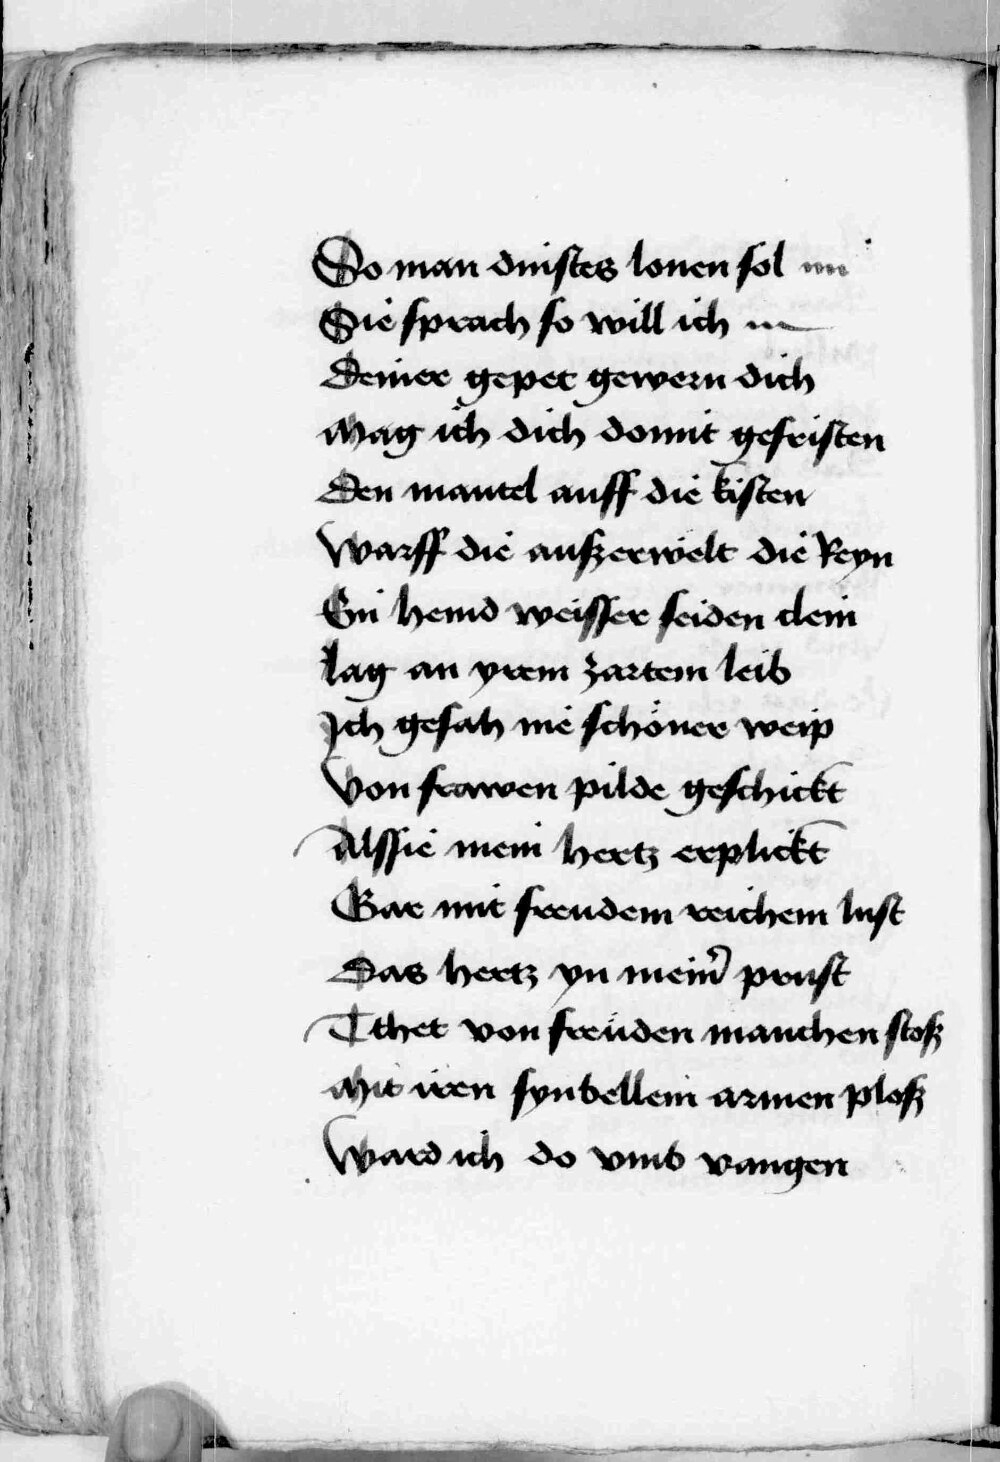 So man dinstes lonen sol
Sie sprach so will ich
Deiner gepet gewern dich
Mag ich dich domit gefristen
Den mantel auff die kisten
Warff die außerwelt die Reyn
Ein hemd weisser seiden clein
lag an yrem zartem leib
Ich gesah nie schöner weip
Von frawen pilde geschickt
Alssie mein hertz erplickt
Gar mit freudem reichem lust
Das hertz yn mein̄ prust
Tthet von freüden manchen stoß
Mit iren synbellein armen ploß
Ward ich do vmb vangen